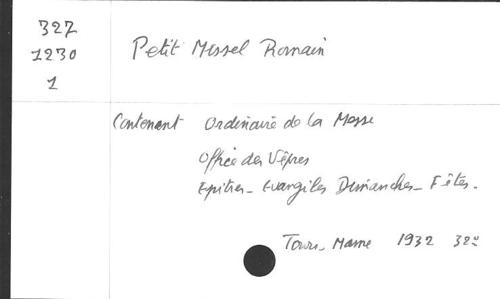 327
1230
1
Petit Missel Romain
Contenant Ordinaire de la Messe
Office des Vêpres
Epitres - Evangiles Dimanches - Fêtes.
Tours - Mame 1932 32º